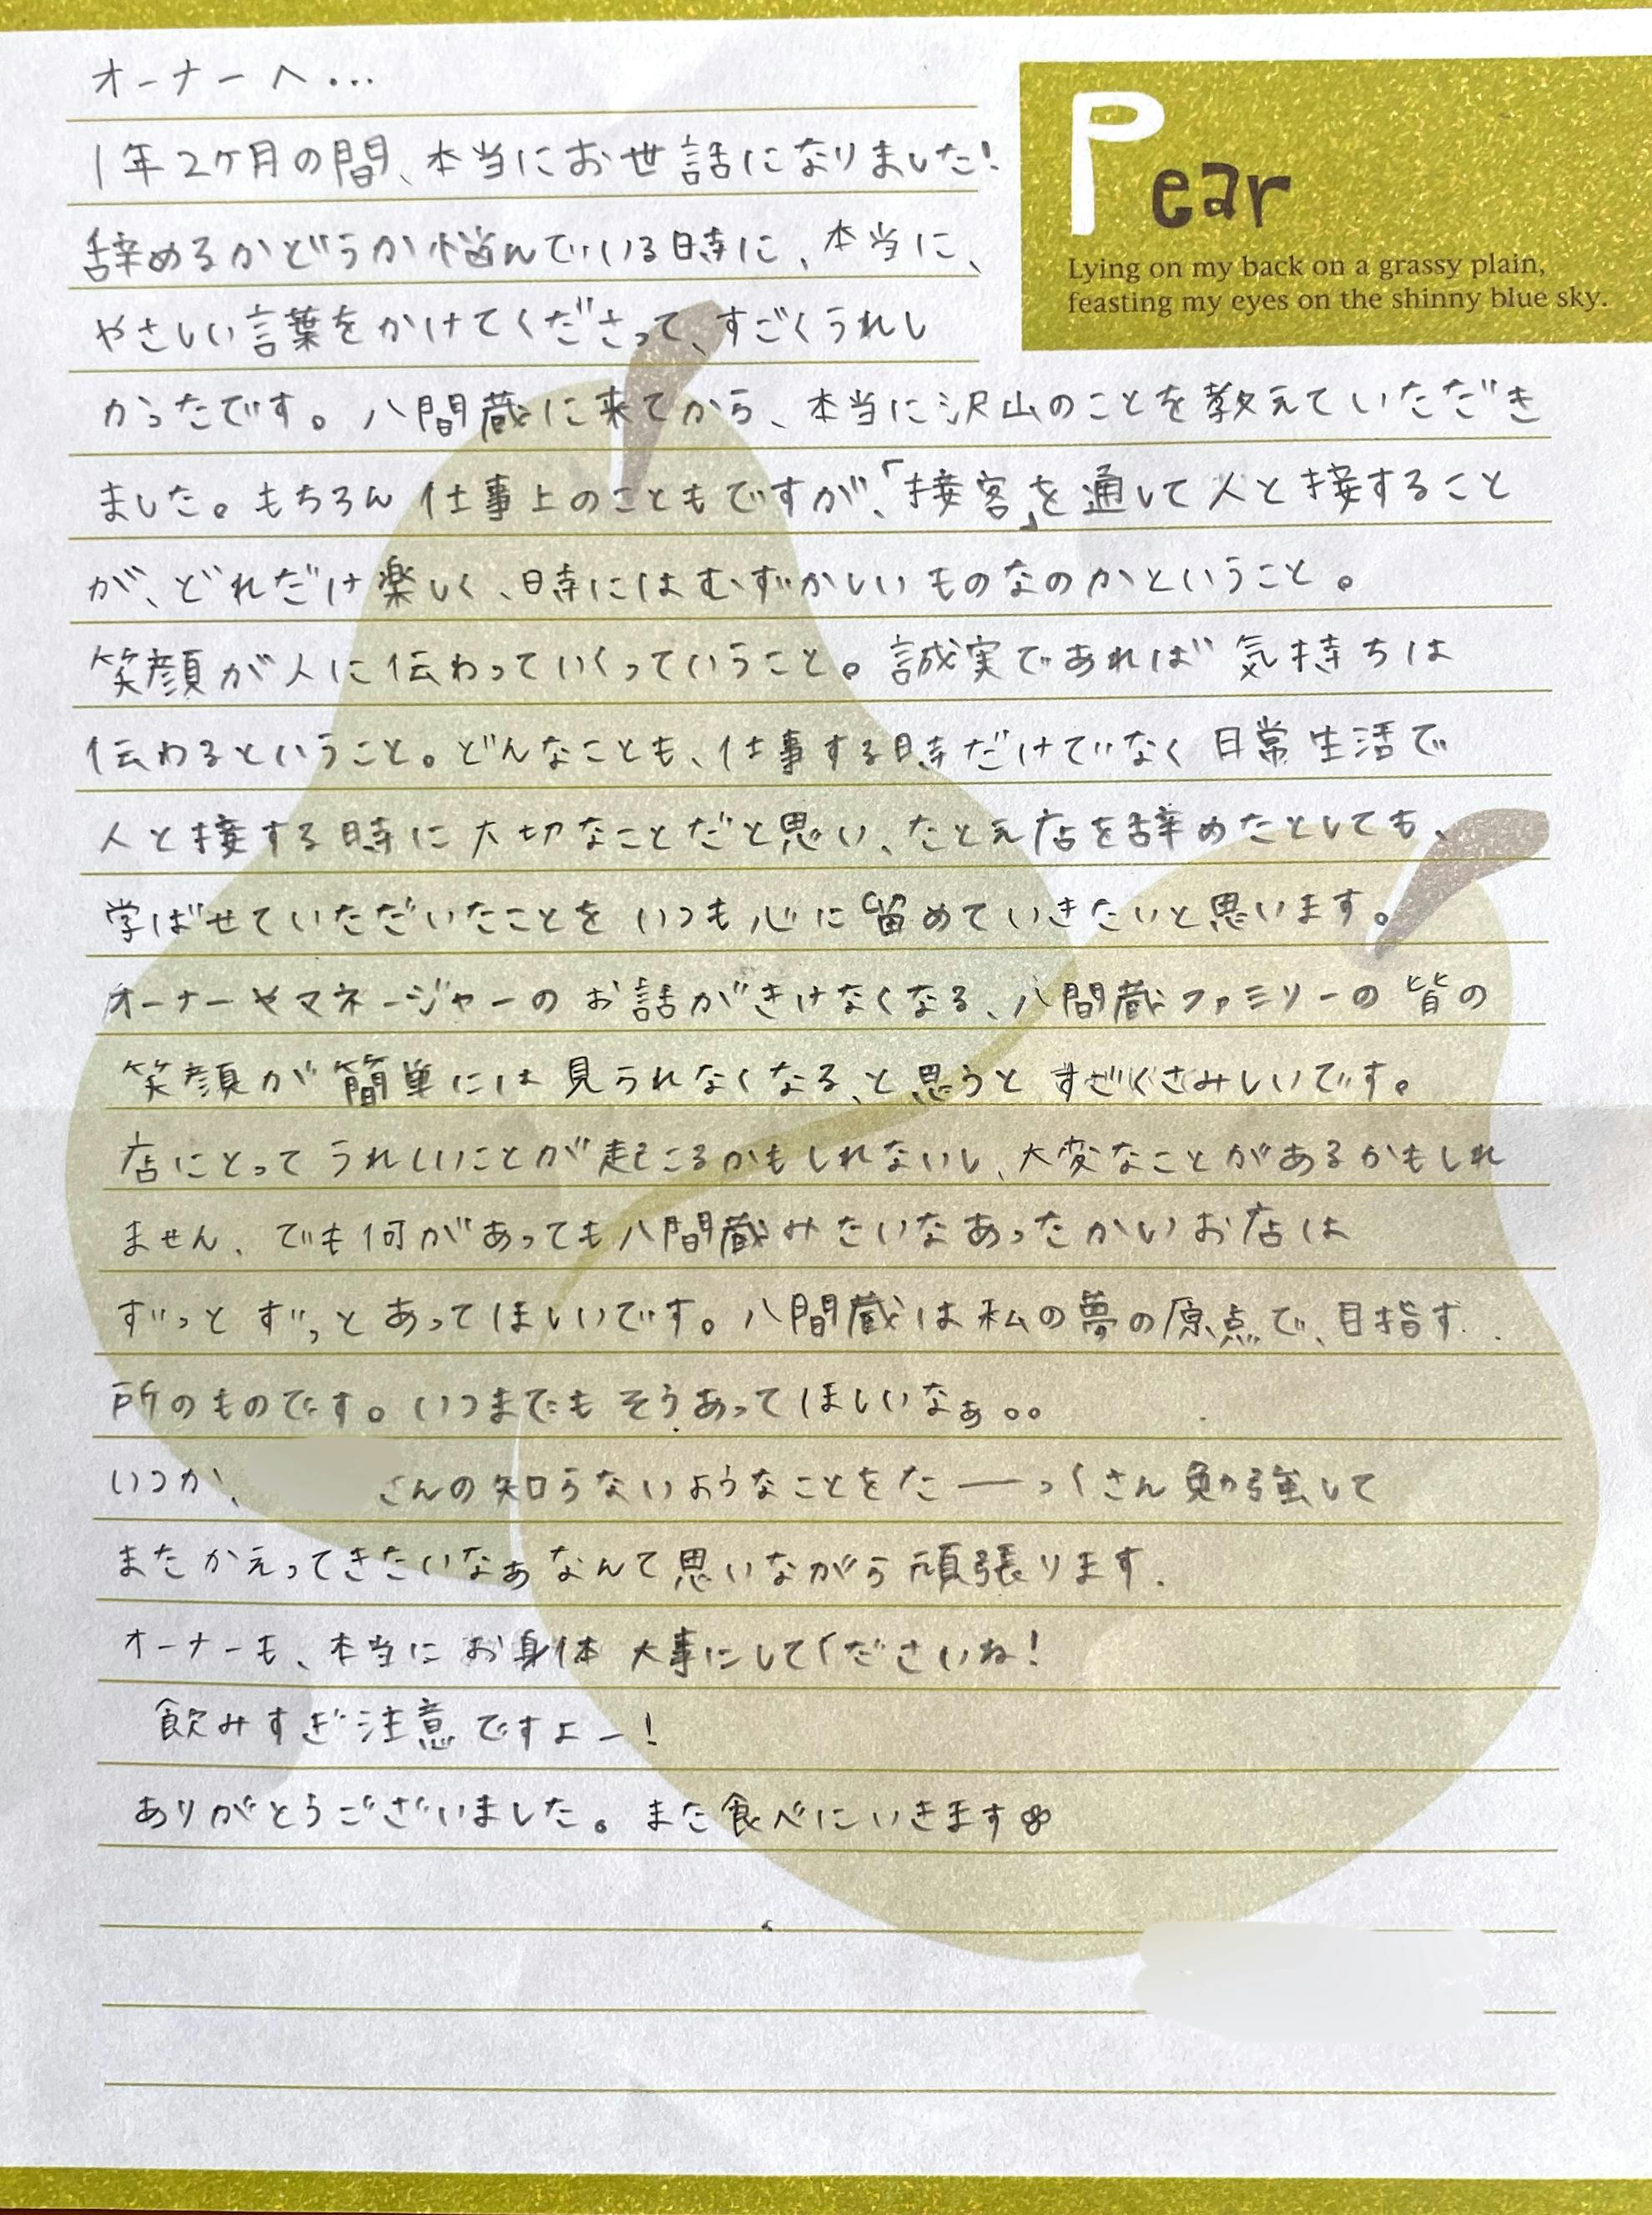 オーナーへ...
1年2ヶ月の間、本当にお世話になりました!
辞めるかどうか悩んでいる時に、本当に、
やさしい言葉をかけてくださって、すごくうれし
かったです。八間蔵に来てから、本当に沢山のことを教えていただき
ました。もちろん仕事上のこともですが、「接客」を通して人と接すること
が、どれだけ楽しく、時にはむずかしいものなのかということ。
笑顔が人に伝わっていくっていうこと。誠実であれば気持ちは
伝わるということ。どんなことも、仕事する時だけでなく日常生活で
人と接する時に大切なことだと思い、たとえ店を辞めたとしても、
学ばせていただいたことをいつも心に留めていきたいと思います。
オーナーやマネージャーのお話がきけなくなる、八間蔵ファミリーの皆の
笑顔が簡単には見られなくなる、と思うとすごくさみしいです。
店にとってうれしいことが起こるかもしれないし、大変なことがあるかもしれ
ません、でも何があっても八間蔵みたいなあったかいお店は
ずっとずっとあってほしいです。八間蔵は私の夢の原点で、目指す
所のものです。いつまでもそうあってほしいなぁ。。
いつか、さんの知らないようなことをたーーっくさん勉強して
またかえってきたいなぁなんて思いながら頑張ります.
オーナーも、本当にお身体大事にしてくださいね!
飲みすぎ注意ですよー!
ありがとうございました。また食べにいきます
Pear
Lying on my back on a grassy plain,
feasting my eyes on the shinny blue sky.